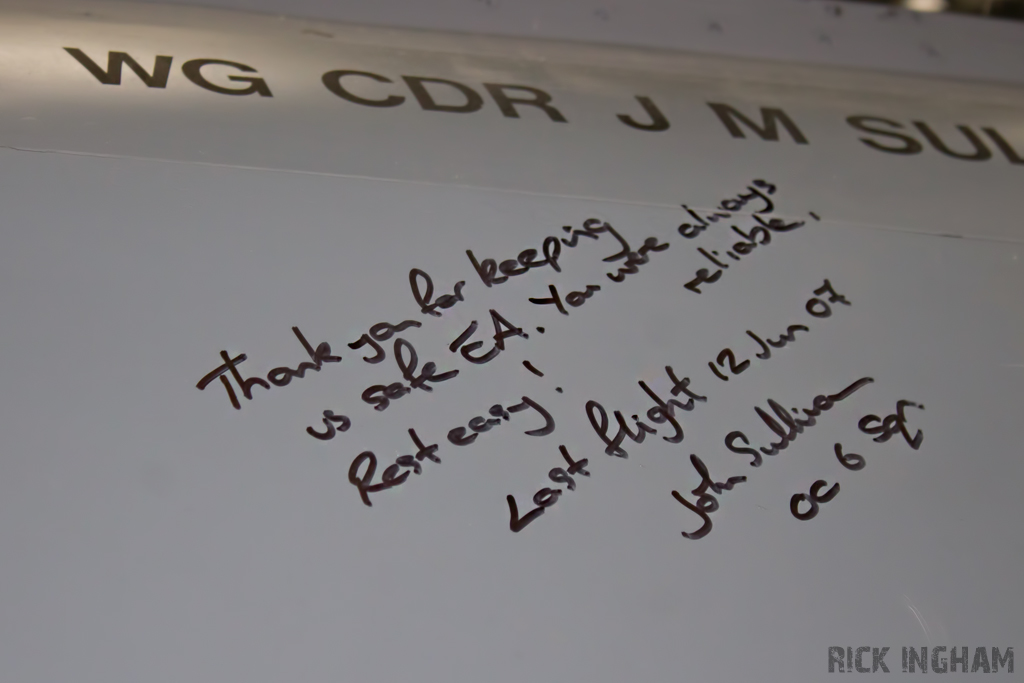 WG CDR J M SUL
Thank you for keeping
us safe EA. You were always
reliable.
Rest easy!
Last flight 12 Jun 07
John Sullivan
OC 6 Sqn.
RICK INGHAM